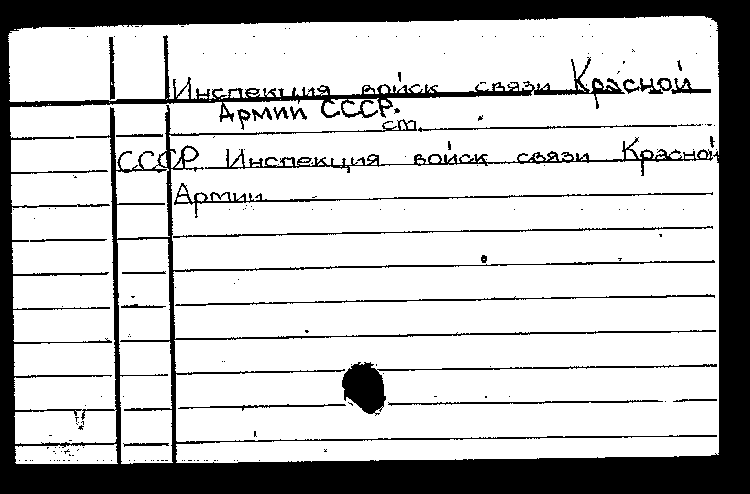 Инспекция войск связи Красной
Армии СССР.
ст.
СССР. Инспекция войск связи Красной
Армии